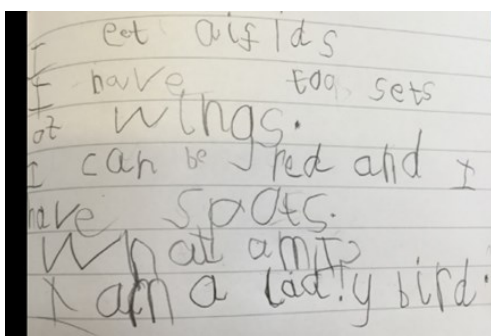 I eet aiflds
I have too sets
of wings.
I can be red and I
have spots.
What am I?
I am a ladily bird.